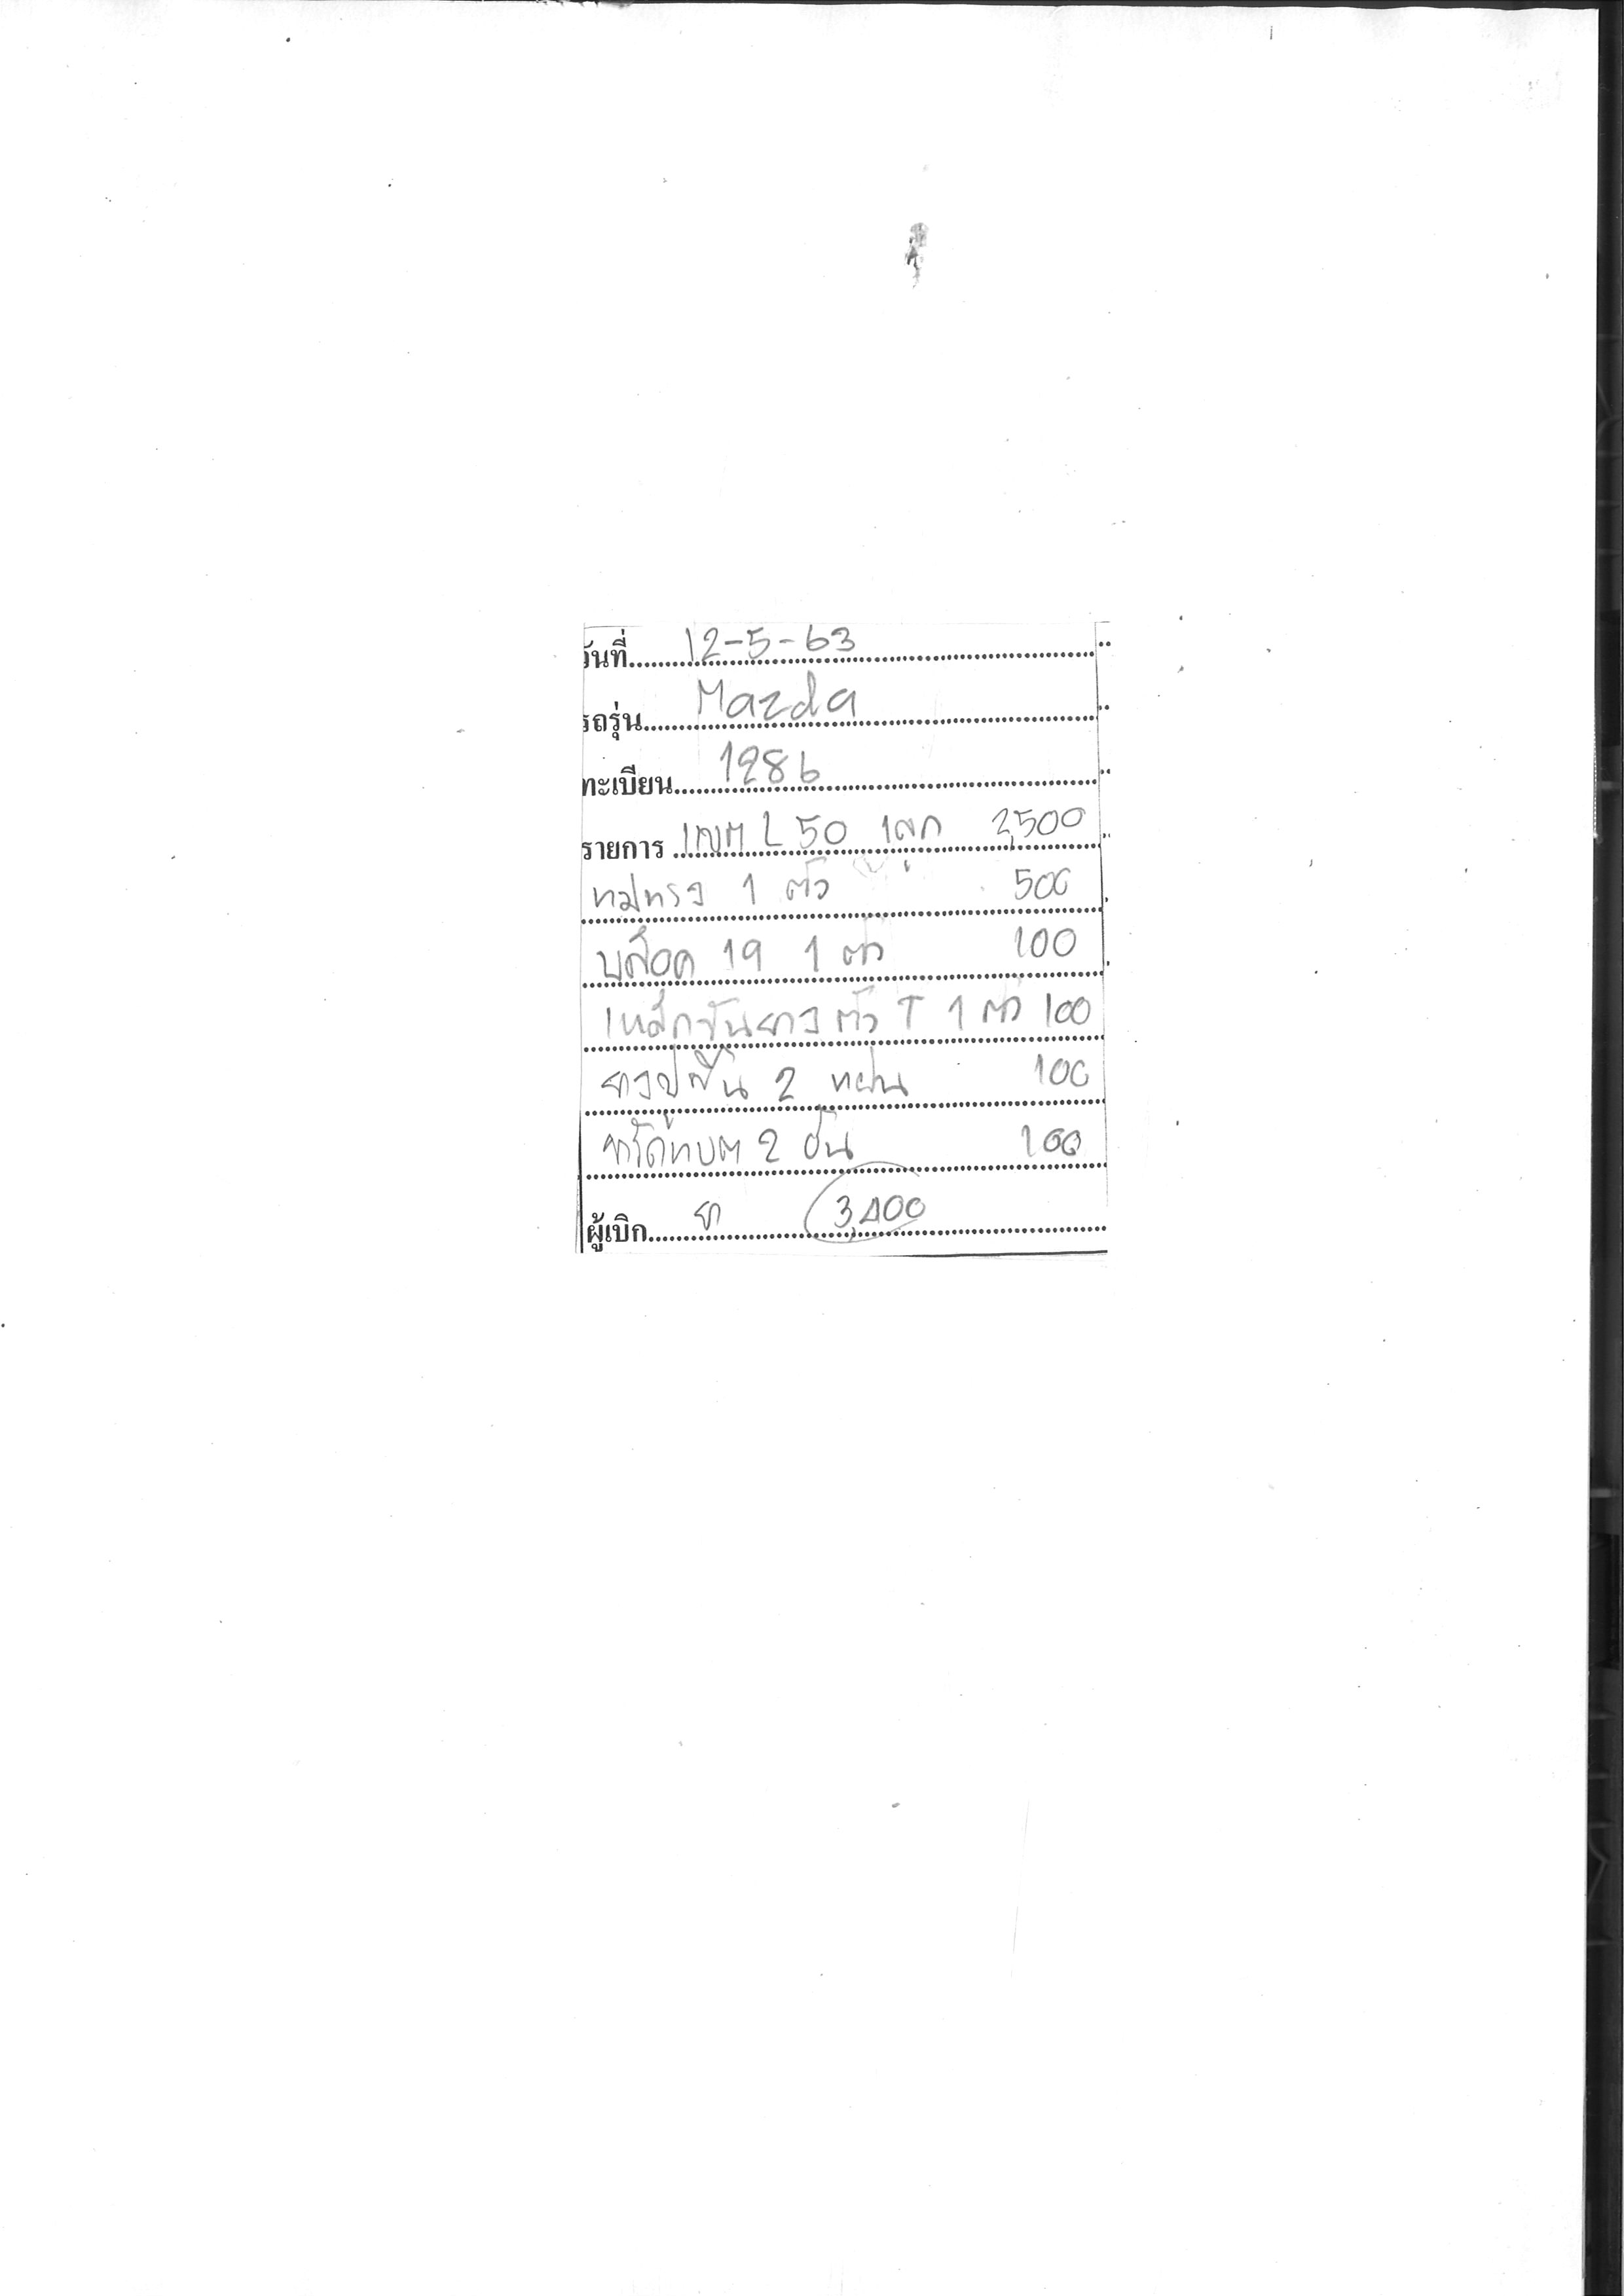 วันที่ 12-5-63
รถรุ่น Mazda
ทะเบียน 1286
รายการ แบต L 50 1ลูก 2,500
1 ตัว 500
บล็อค 19 1 ตัว 100
เหล็กขันยาง ตัว T 1 ตัว 100
ยางปูพื้น 2 แผ่น 100
2 อัน 100
ผู้เบิก 3,400